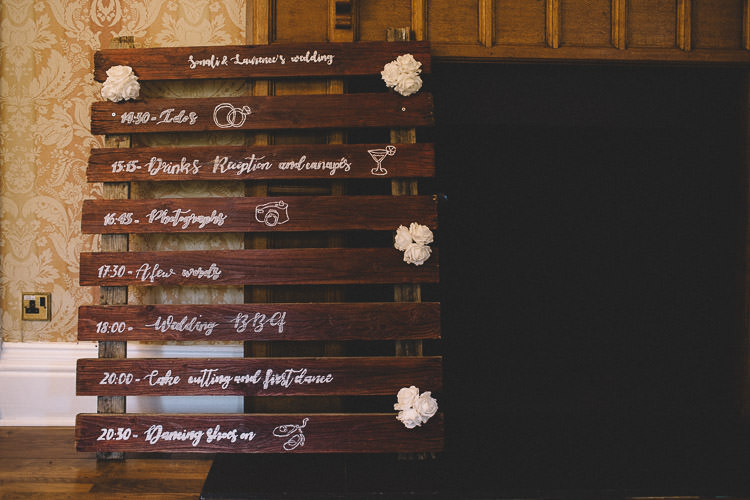 Sonali & Laurence's wedding
14:30 - I dos
15:15 - Drinks Reception and canapés
16:45 - Photographs
17:30 - A few words
18:00 - Wedding BBQ
20:00 - Cake cutting and first dance
20:30 - Dancing shoes on